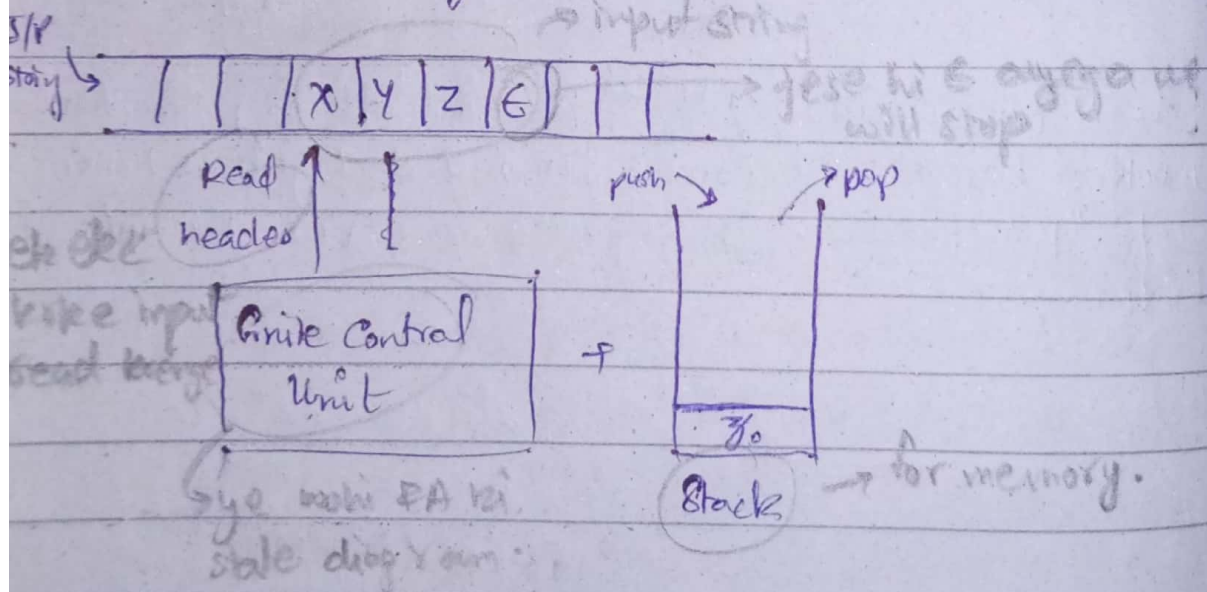 → input string
I/P
string
X Y Z ∈
→ jese hi ∈ ayega we
will stop
Read
header
push
pop
ek ek
krke input
read karega
Finite Control
Unit
+
z₀
Stack
→ for memory.
↳ ye wohi FA ki
state diagram